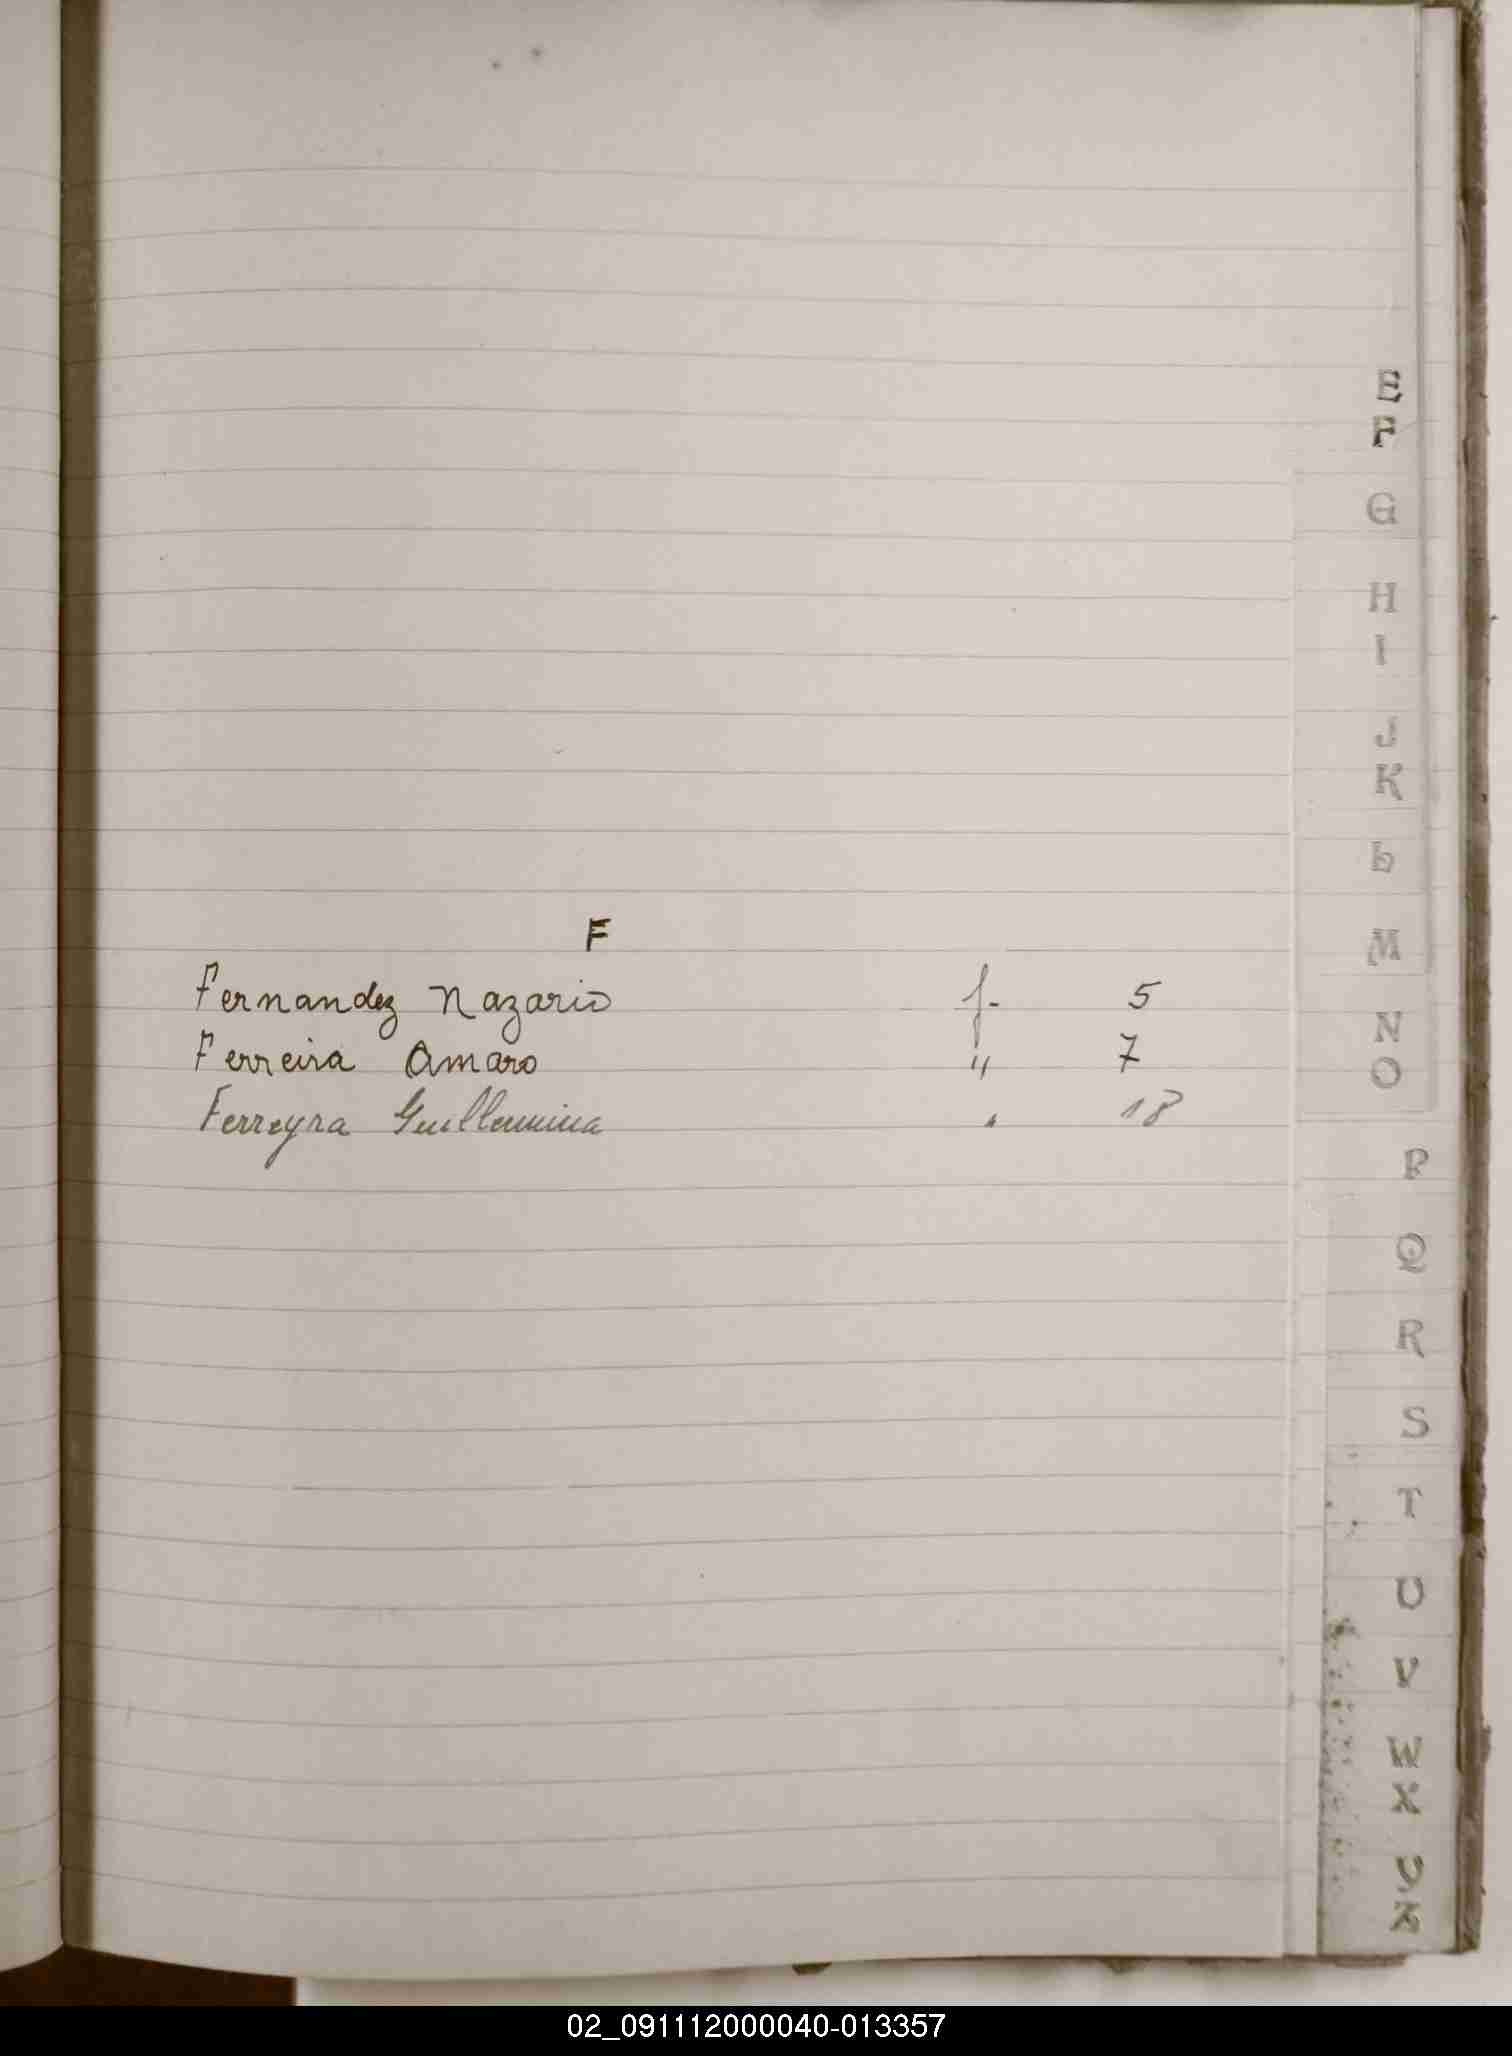 E
F
G
H
I
J
K
L
M
N
O
P
Q
R
S
T
U
V
W
X
Y
Z
F
Fernandez Nazario f- 5
Ferreira Amaro " 7
Ferreyra Guillermina " 18
02_091112000040-013357